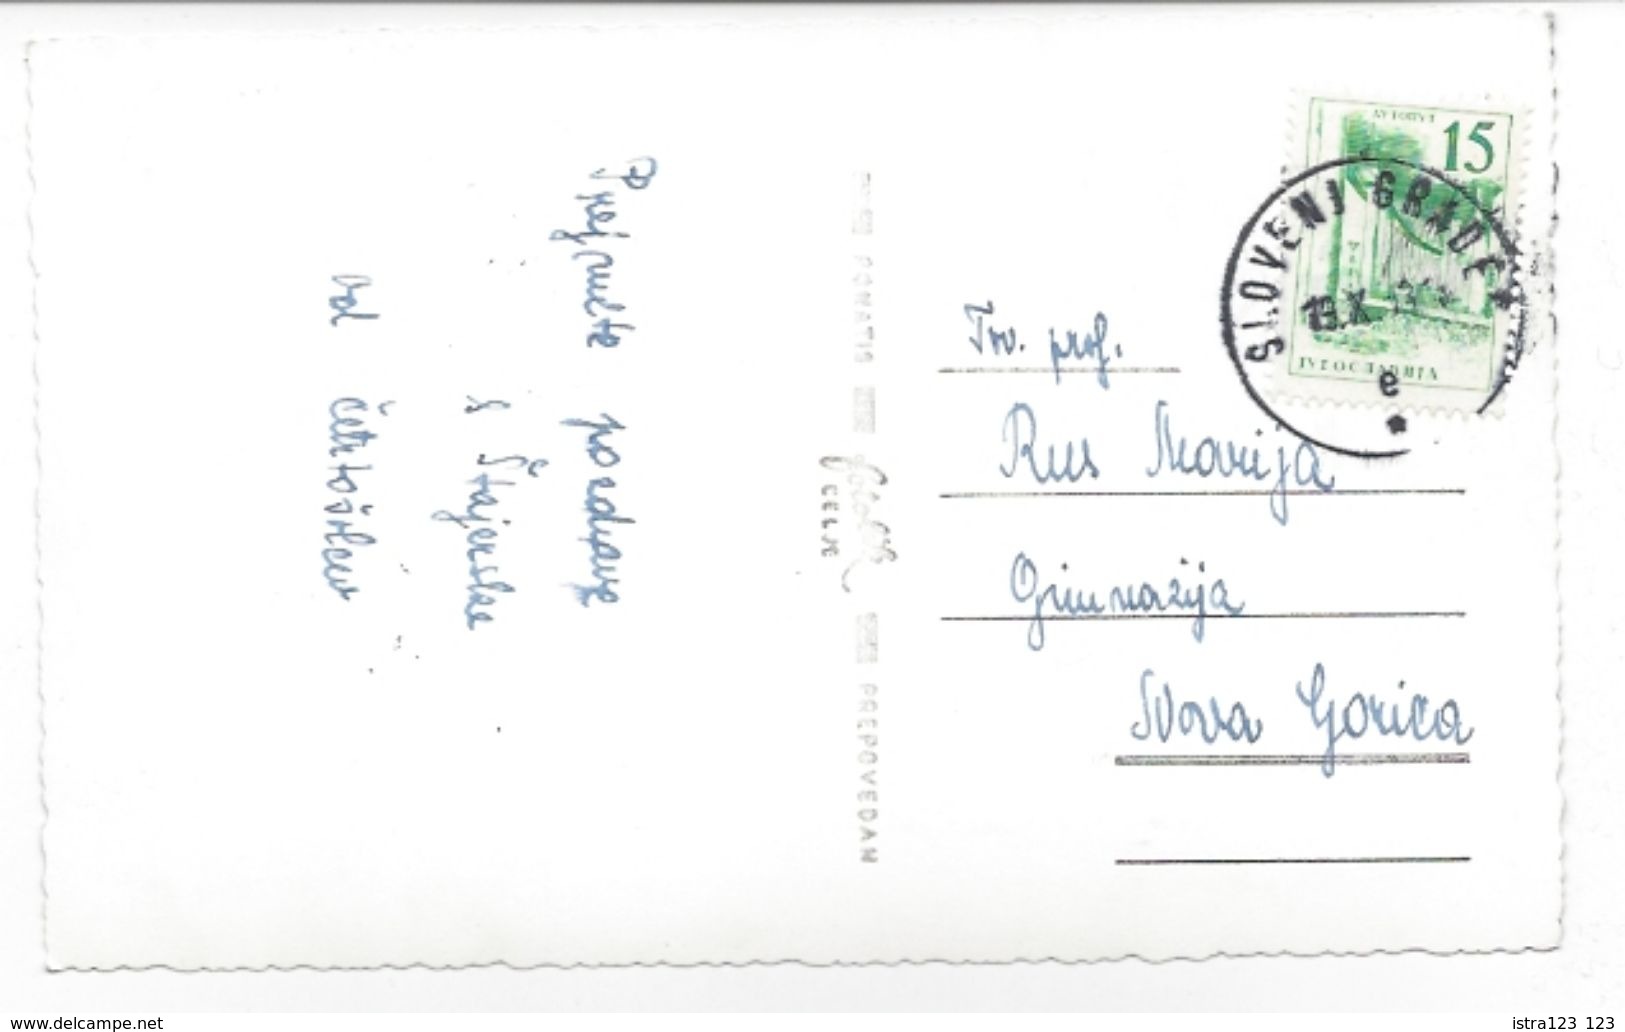 Prejmite pozdrave
s Štajerske
od četrtošolcev
PONATIS
CELJE
PREPOVEDAN
15
ЈУГОСЛАВИЈА
SLOVENJ GRADEC
e
Tov. prof.
Rus Marija
Gimnazija
Nova Gorica
www.delcampe.net
istra123 123